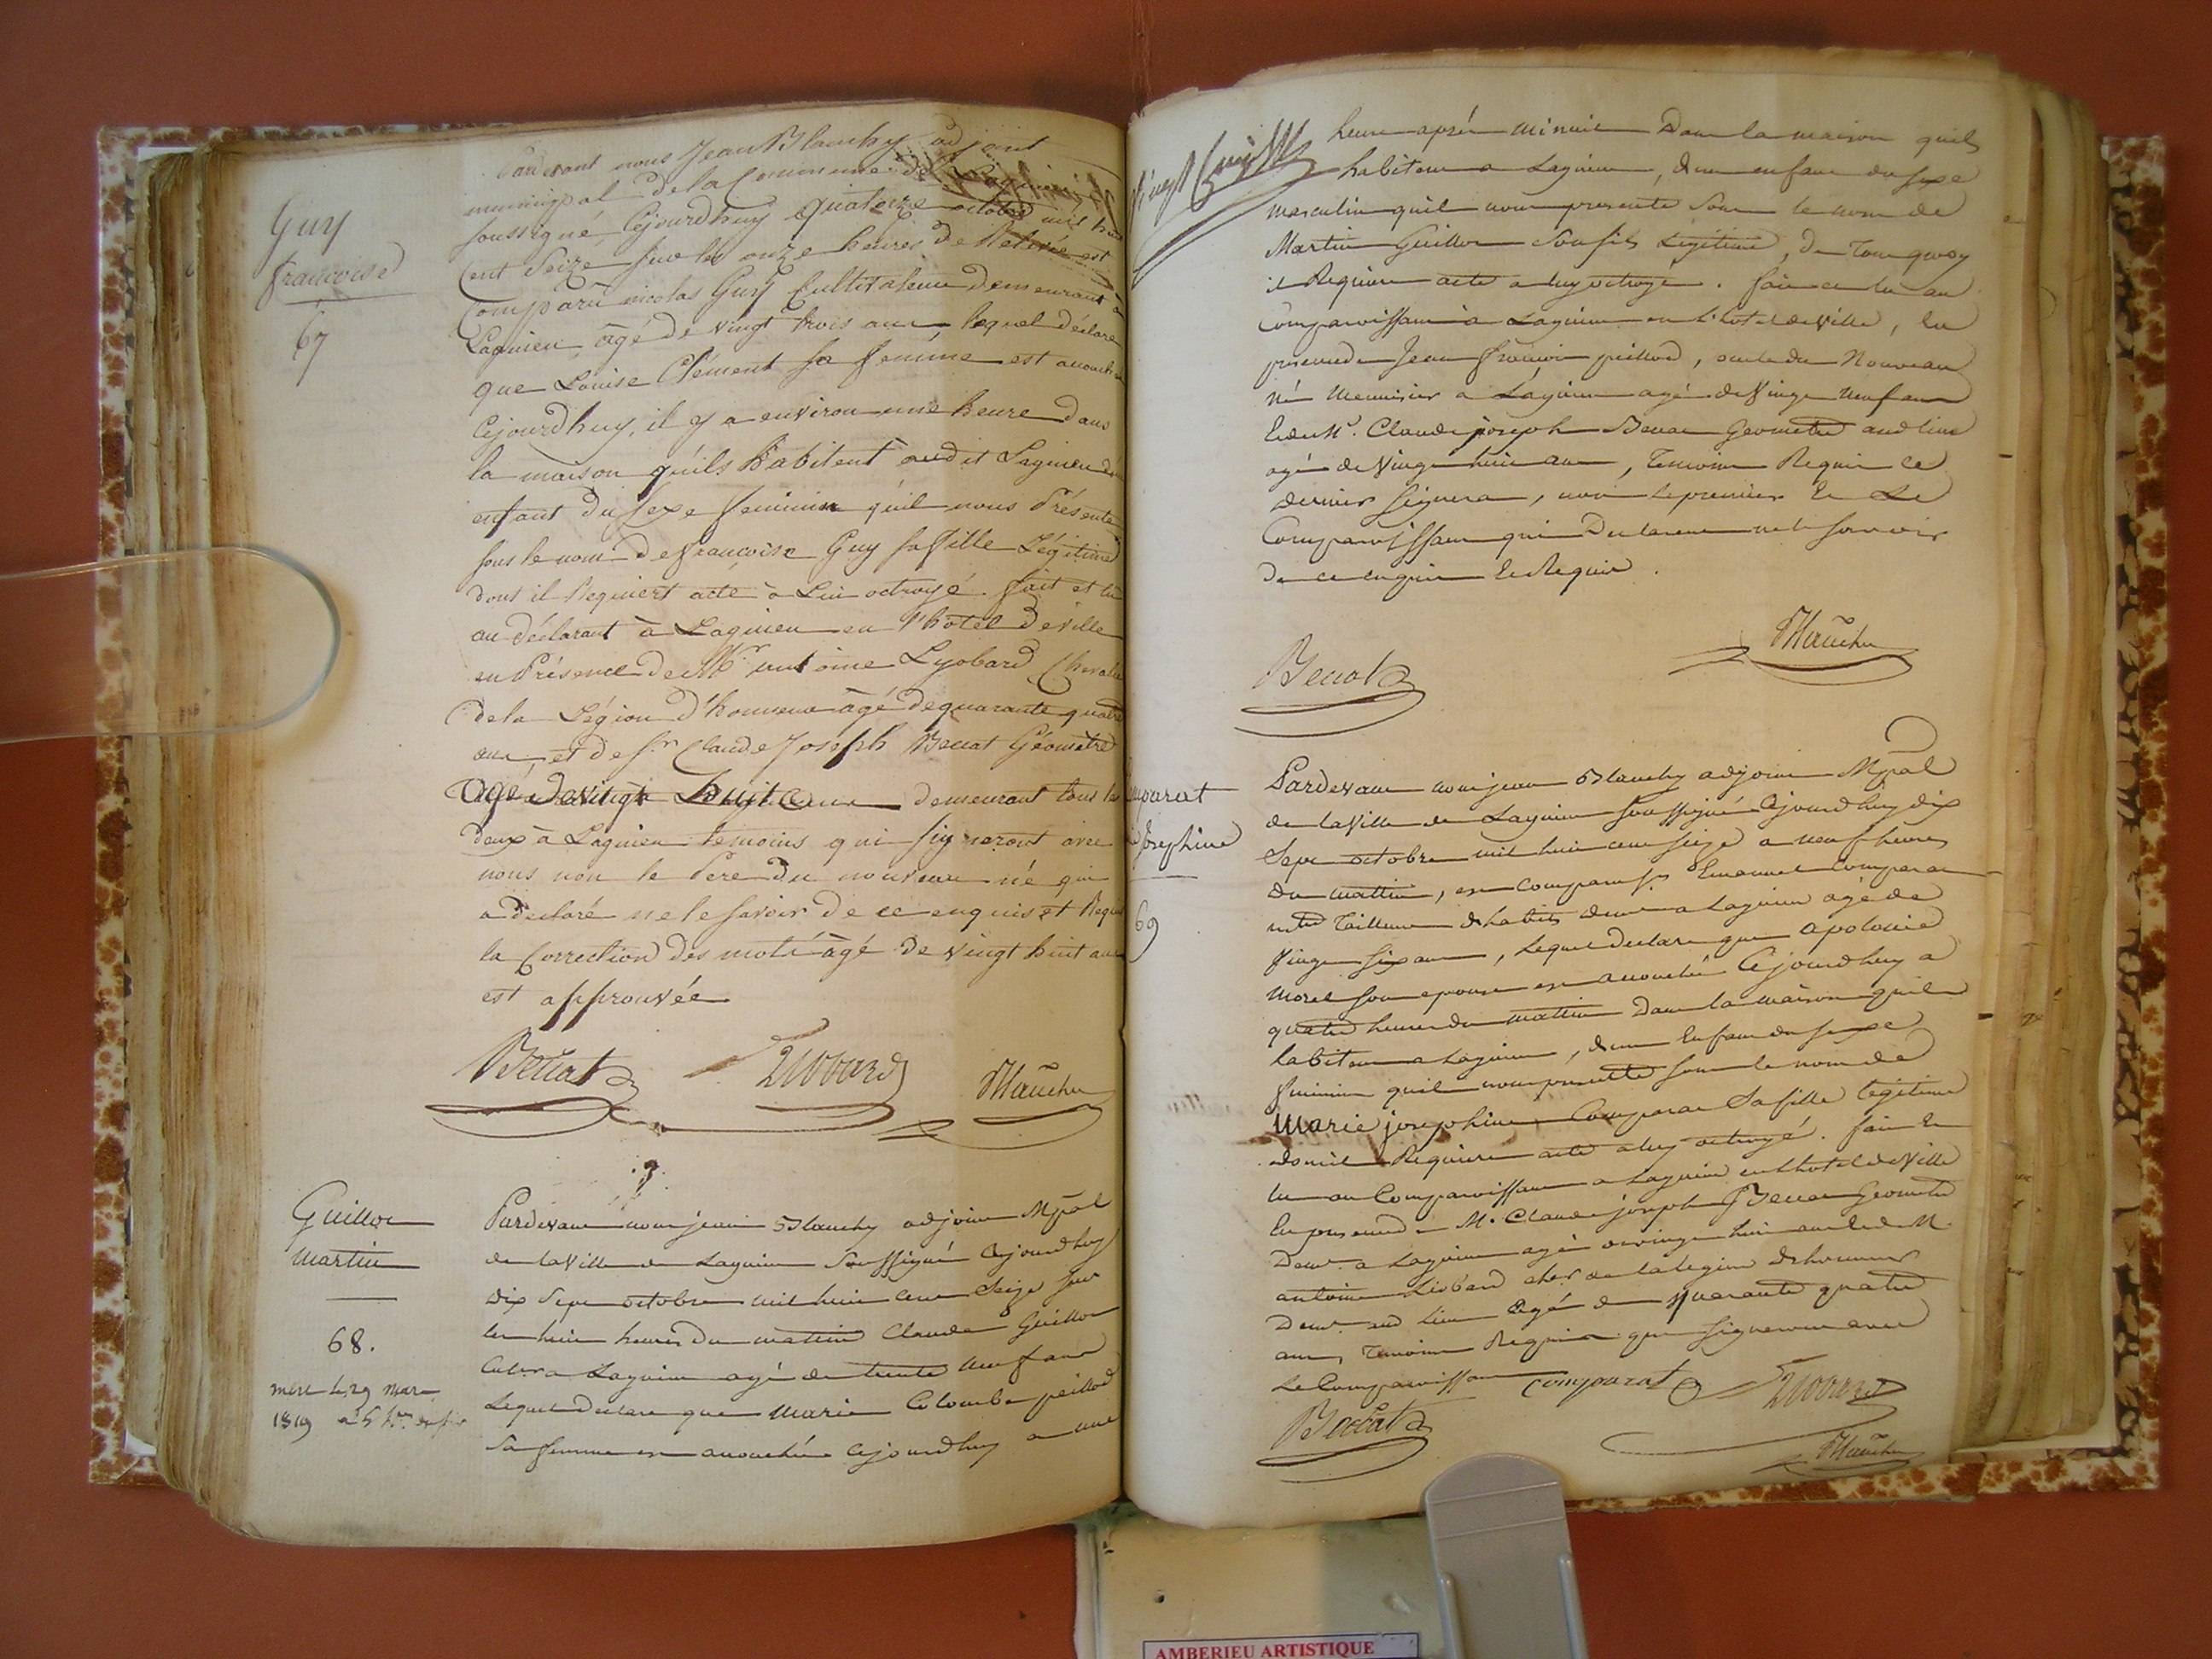 Guy
francoise
67
Pardevant nous Jean Blanchy adjoint
municipal de la Commune de Lagnieu
soussigné, Cejourdhuy quatorze octobre mil huit
Cent Seize sur les onze heures de Relevée est
Comparu nicolas Guy Cultivateur demeurant à
Lagnieu âgé de vingt trois ans lequel déclare
que Louise Clément sa femme est accouchée
Cejourdhuy, il y a environ une heure dans
la maison qu'ils habitent audit Lagnieu d'un
enfant du sexe feminin qu'il nous Présente
sous le nom de francoise Guy sa fille Légitime
dont il Requiert acte à Lui octroyé. fait et lu
au déclarant à Lagnieu en l'hôtel de ville
en Présence de Mr. antoine Lyobard Chevalier
de la Légion d'honneur âgé de quarante quatre
ans, et de Sr. Claude Joseph Beccat Géomètre
âgé de vingt huit ans demeurant tous les
deux à Lagnieu temoins qui signeront avec
nous non le Pere du nouveau né qui
a déclaré ne le savoir de ce enquis et Requis
la Correction des mots âgé de vingt huit ans
est approuvée
Beccat Liobard Blanchy
Guillot
Martin
68.
mort le 29 mars
1819 à 5 hres du soir
Pardevant nous jean Blanchy adjoint Mpal
de la Ville de Lagnieu Soussigné Cejourdhuy
dix Sept octobre mil huit cent Seize sur
les huit heures du mattin Claude Guillot
Cultr. a Lagnieu agé de trente neuf ans
Lequel declare que Marie Colombe peillod
Sa femme est accouchée Cejourdhuy a une
Vingt
heure après minuit Dans la maison quils
habitent a Lagnieu, d'un enfant du sexe
masculin quil nous presente Sous le nom de
Martin Guillot Son fils Legitime, de tout quoy
il Requiert acte a luy octroyé. fait et lu au
Comparoissant à Lagnieu en l'hotel de Ville, en
presence de Jean françois peillod, oncle du Nouveau
né Menuisier a Lagnieu agé de Vingt neuf ans
Et de Mr. Claude joseph Beccat Geometre aud lieu
agé de Vingt huit ans, Temoins Requis Ce
dernier Signera, non le premier Et Le
Comparoissant qui Declarent ne le Sçavoir
de ce enquis Et Requis.
Beccat Blanchy
Comparat
Josephine
69
Pardevant nous jean Blanchy adjoint Mpal
de la Ville de Lagnieu soussigné Cejourdhuy dix
Sept octobre mil huit cent seize a neuf heures
du mattin, est comparu Sr. Emanuel Comparat
mtre Tailleur d'habits demt a Lagnieu agé de
Vingt six ans, Lequel declare que apolonie
Morel son epouse est accouchée Cejourdhuy a
quatre heures du mattin Dans la maison quils
habitent a Lagnieu, d'un Enfant du sexe
feminin quil nous presente sous le nom de
Marie josephine Comparat Sa fille Legitime
dont il Requiert acte a luy octroyé. fait Et
lu au Comparoissant a Lagnieu en l'hotel de Ville
En presence de M. Claude joseph Beccat Geometre
Demt. a Lagnieu agé de vingt huit ans et de M.
antoine Liobard cher de la legion d'honneur
Demt. aud Lieu agé de quarante quatre
ans, Temoins Requis qui Signeront avec
Le Comparoissant comparat Liobard
Beccat Blanchy
AMBERIEU ARTISTIQUE